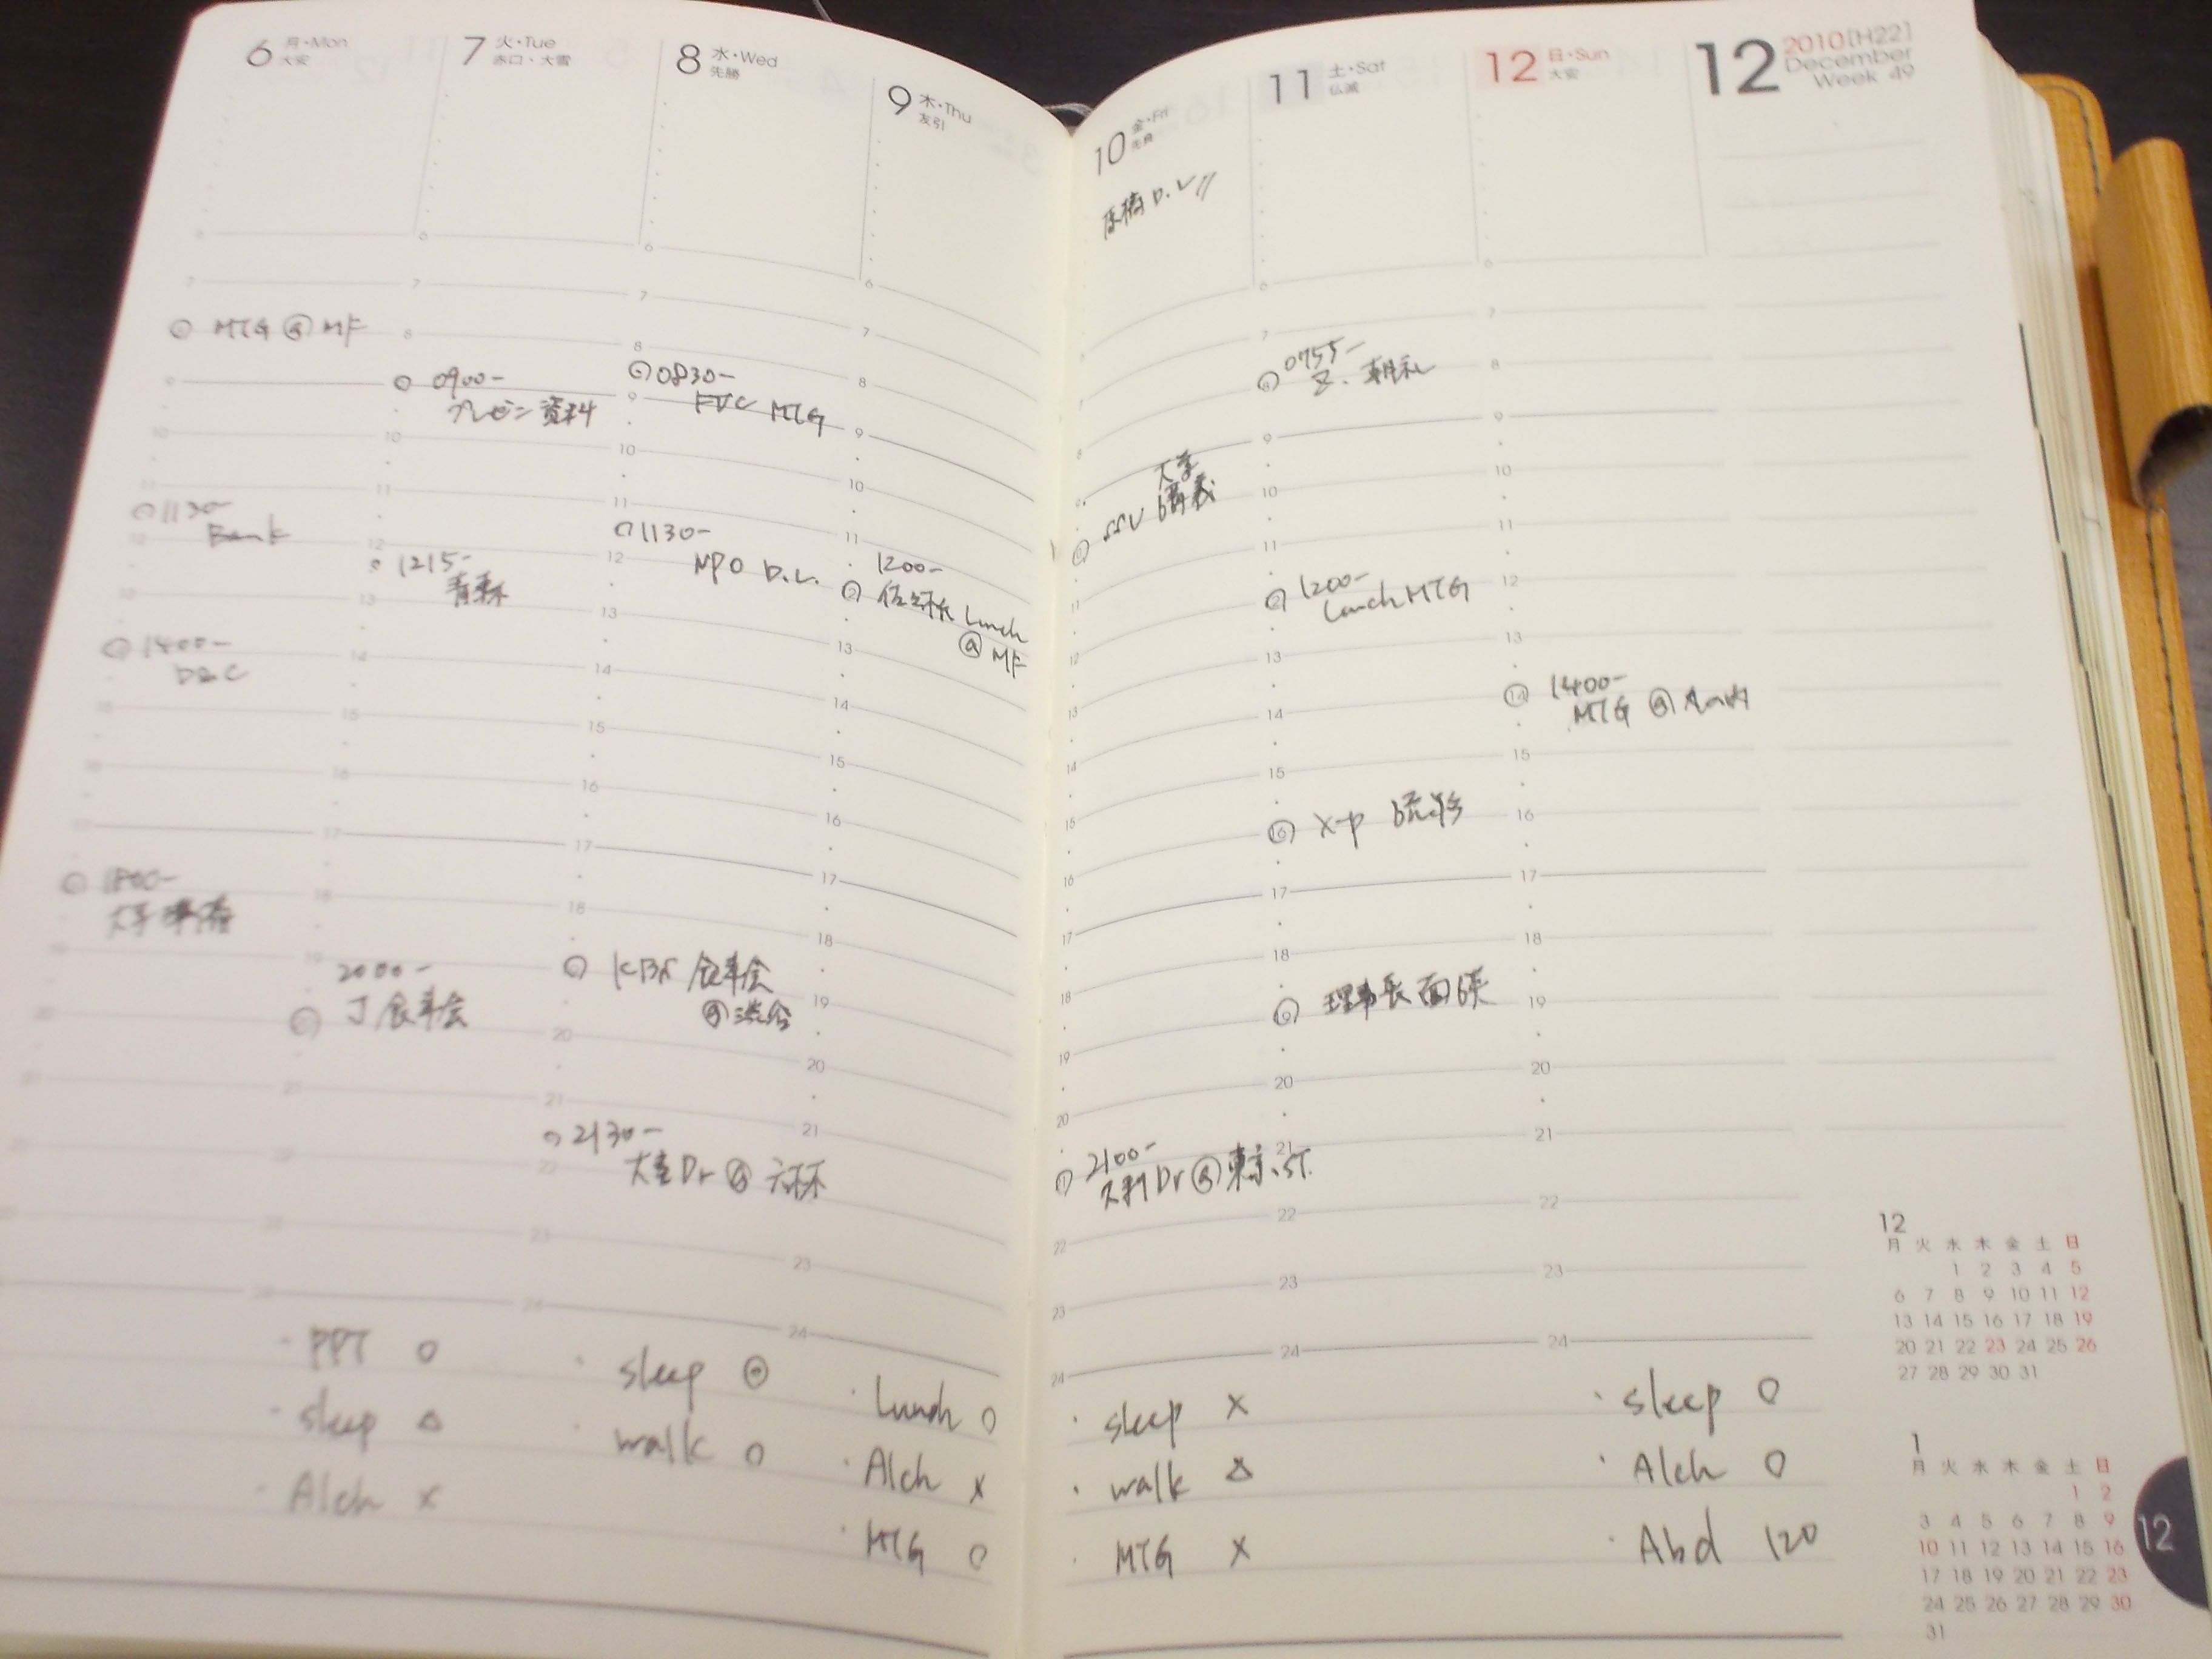 6 月・Mon
大安
7 火・Tue
赤口・大雪
8 水・Wed
先勝
9 木・Thu
友引
MTG @ MF
0900-
プレゼン資料
0830-
MTG
1130-
Bank
1215-
青森
1130-
NPO D.V.
1200-
Lunch
@ MF
1400-
1800-
大学準備
2000-
J 食事会
食事会
@渋谷
2130-
Dr @ 六本木
・PPT ○
・sleep △
・Alch ×
・sleep ◎
・walk ○
・Lunch ○
・Alch ×
・MTG ○
10 金・Fri
先負
11 土・Sat
仏滅
12 日・Sun
大安
12 2010[H22]
December
Week 49
D.V
大学
SSV 講義
0755-
朝礼
1200-
Lunch MTG
1400-
MTG @
X-P 読影
理事長面談
2100-
Dr @ 東京ST.
・sleep ×
・walk △
・MTG ×
・sleep ○
・Alch ○
・Abd 120
12
月 火 水 木 金 土 日
1 2 3 4 5
6 7 8 9 10 11 12
13 14 15 16 17 18 19
20 21 22 23 24 25 26
27 28 29 30 31
1
月 火 水 木 金 土 日
1 2
3 4 5 6 7 8 9
10 11 12 13 14 15 16
17 18 19 20 21 22 23
24 25 26 27 28 29 30
31
12